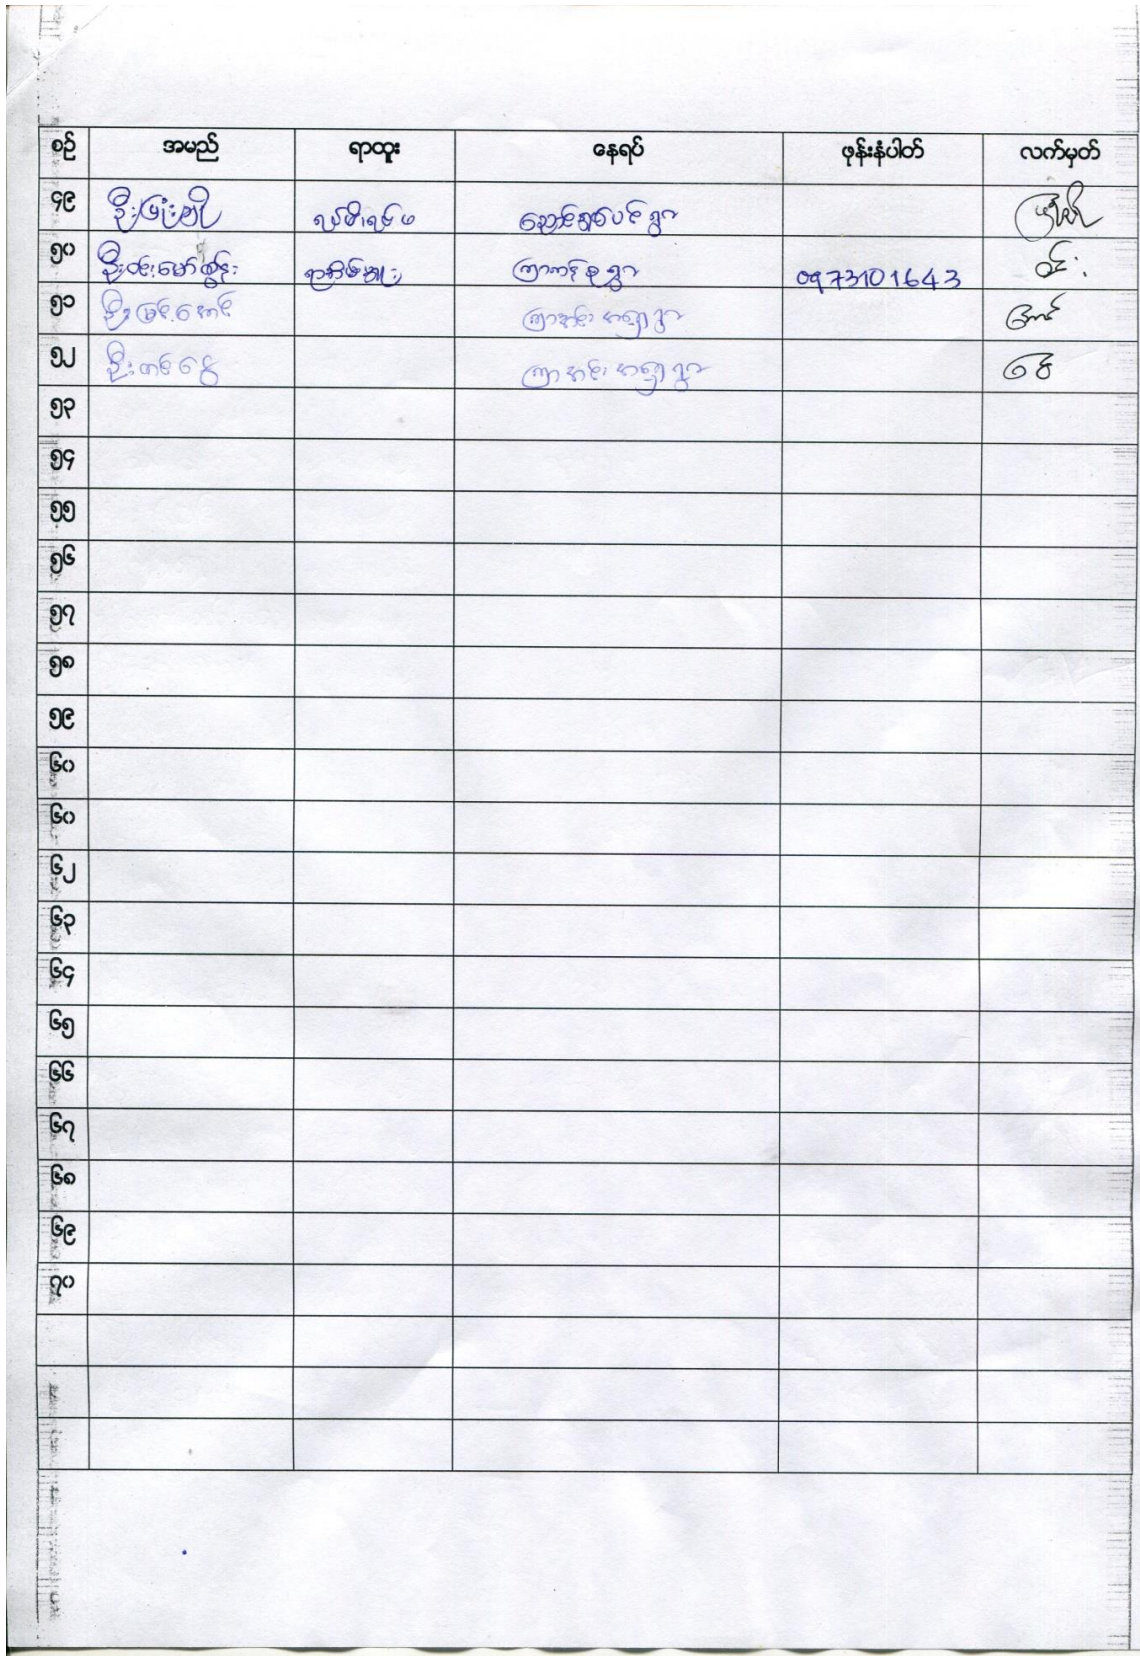 စဉ် အမည် ရာထူး နေရပ် ဖုန်းနံပါတ် လက်မှတ်
၄၉ ဦး ရပ်မိရပ်ဖ ညောင်ရှစ်ပင်ရွာ
၅၀ ဦးဝင်းမော်ထွန်း ရာအိမ်မှူး ကြာကန်စုရွာ 0973101643 ဝင်း
၅၁ ဦးမြင့်အောင် ကြာအင်းအရှေ့ရွာ အောင်
၅၂ ဦးတင်ငွေ ကြာအင်းအရှေ့ရွာ ငွေ
၅၃
၅၄
၅၅
၅၆
၅၇
၅၈
၅၉
၆၀
၆၀
၆၂
၆၃
၆၄
၆၅
၆၆
၆၇
၆၈
၆၉
၇၀